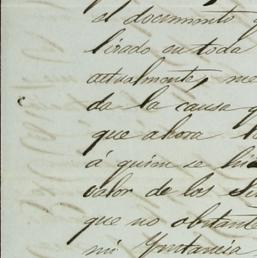 el documento
lizado en toda
actualmente, me
da la causa q
que ahora
á quien se hi
valor de los
que no obstante
mi Ynstancia